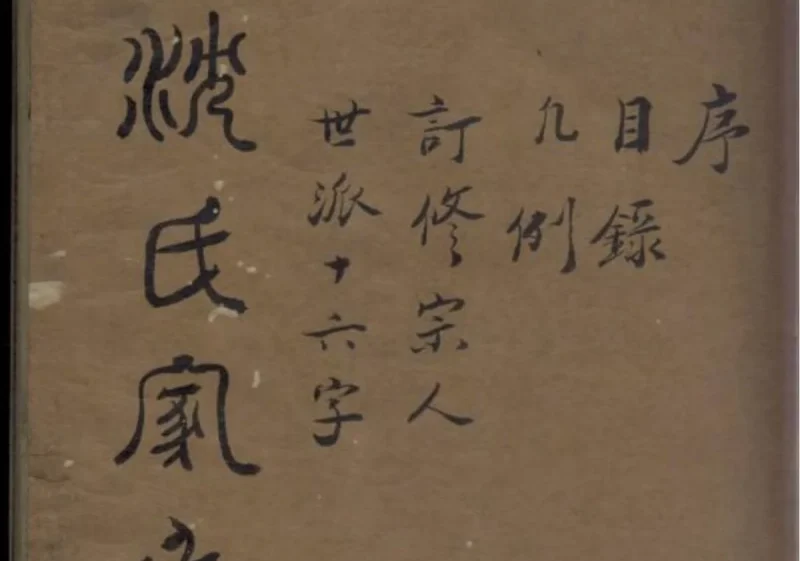 序
目錄
凡例
訂修宗人
世派十六字
沈氏家